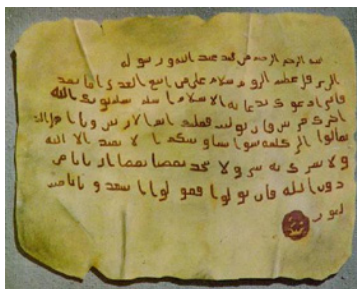 بسم الله الرحمن الرحيم من محمد عبد الله ورسوله
الى هرقل عظيم الروم سلام على من اتبع الهدى اما بعد
فاني ادعوك بدعاية الاسلام اسلم تسلم يوتك الله
اجرك مرتين فان توليت فعليك اثم
تعالوا الى كلمة سوا بيننا وبينكم الا نعبد الا الله
ولا نشرك به شيا ولا يتخذ بعضنا بعضا اربابا من
دون الله فان تولوا فقولوا اشهدوا بانا مسلـ
ـمون